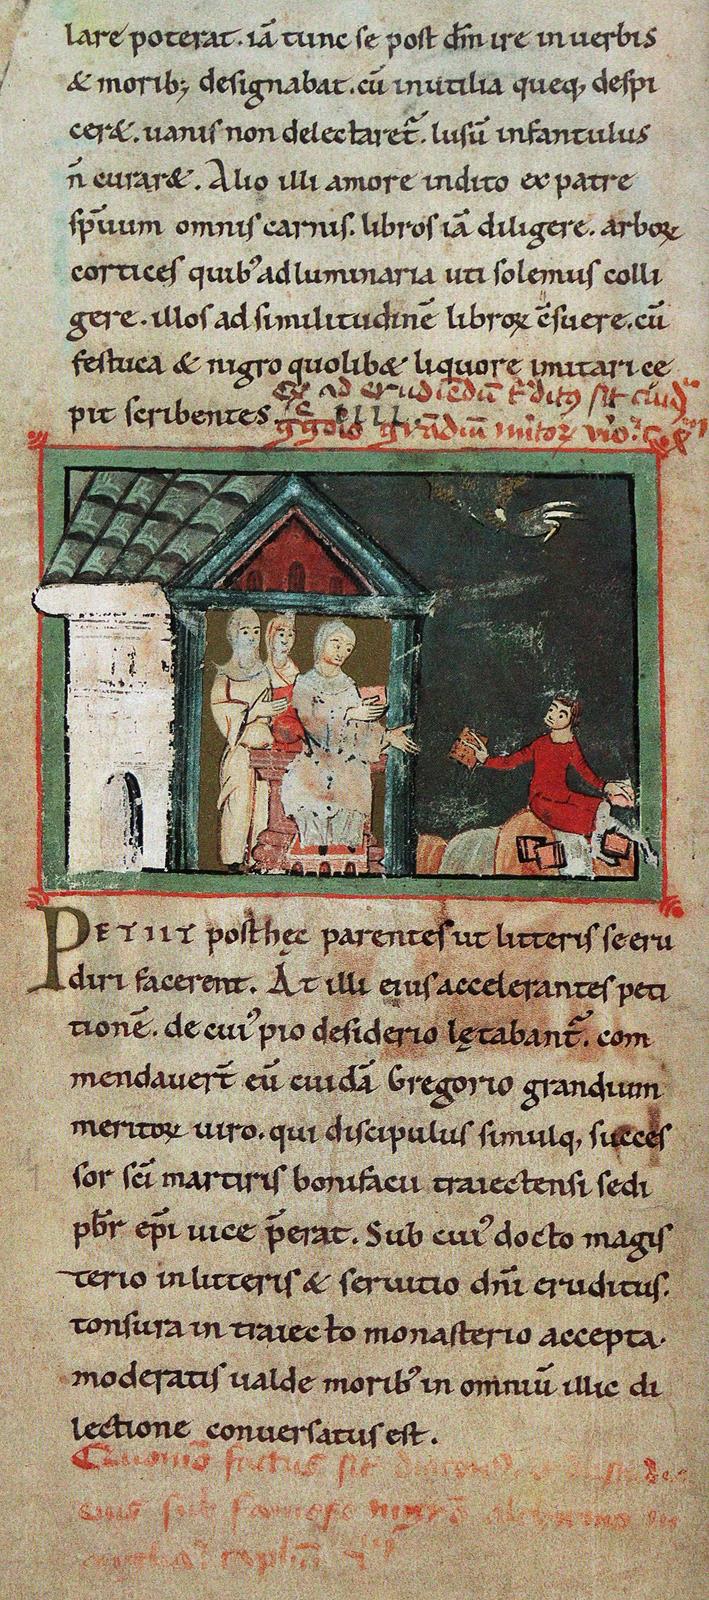 lare poterat. iā tunc se post dm̄ ire in uerbis
& morib; designabat. cū inutilia queq, despi
cer&. uanis non delectaret̄. lusū infantulus
n̄ curar&. Alio illi amore indito ex patre
sp̄uum omnis carnis. libros iā diligere. arboꝝ
cortices quib' ad luminaria uti solemus colli
gere. illos ad similitudinē libroꝝ c̄suere. cū
festuca & nigro quolib& liquore imitari ce
pit scribentes.
PETIIT posthęc parentes ut litteris se eru
diri facerent. At illi eius accelerantes peti
tionē. de cui' pio desiderio lętabant̄. com
mendauer̄t eū cuidā Gregorio grandium
meritoꝝ uiro. qui discipulus simulq, succes
sor sc̄i martiris bonifacii traiectensi sedi
pbr̄ ep̄i uice p̄erat. Sub cui' docto magis
terio in litteris & seruitio dn̄i eruditus.
tonsura in traiecto monasterio accepta.
moderatis ualde morib' in omniū illic di
lectione conuersatus est.